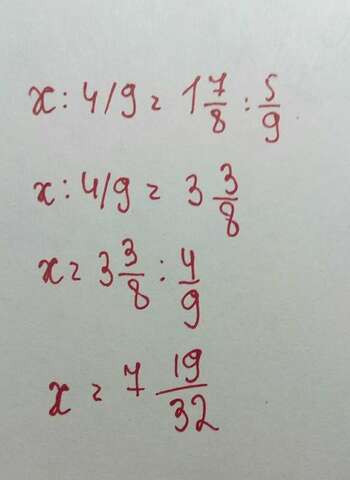 x : 4/9 = 1 7/8 : 5/9
x : 4/9 = 3 3/8
x = 3 3/8 : 4/9
x = 7 19/32